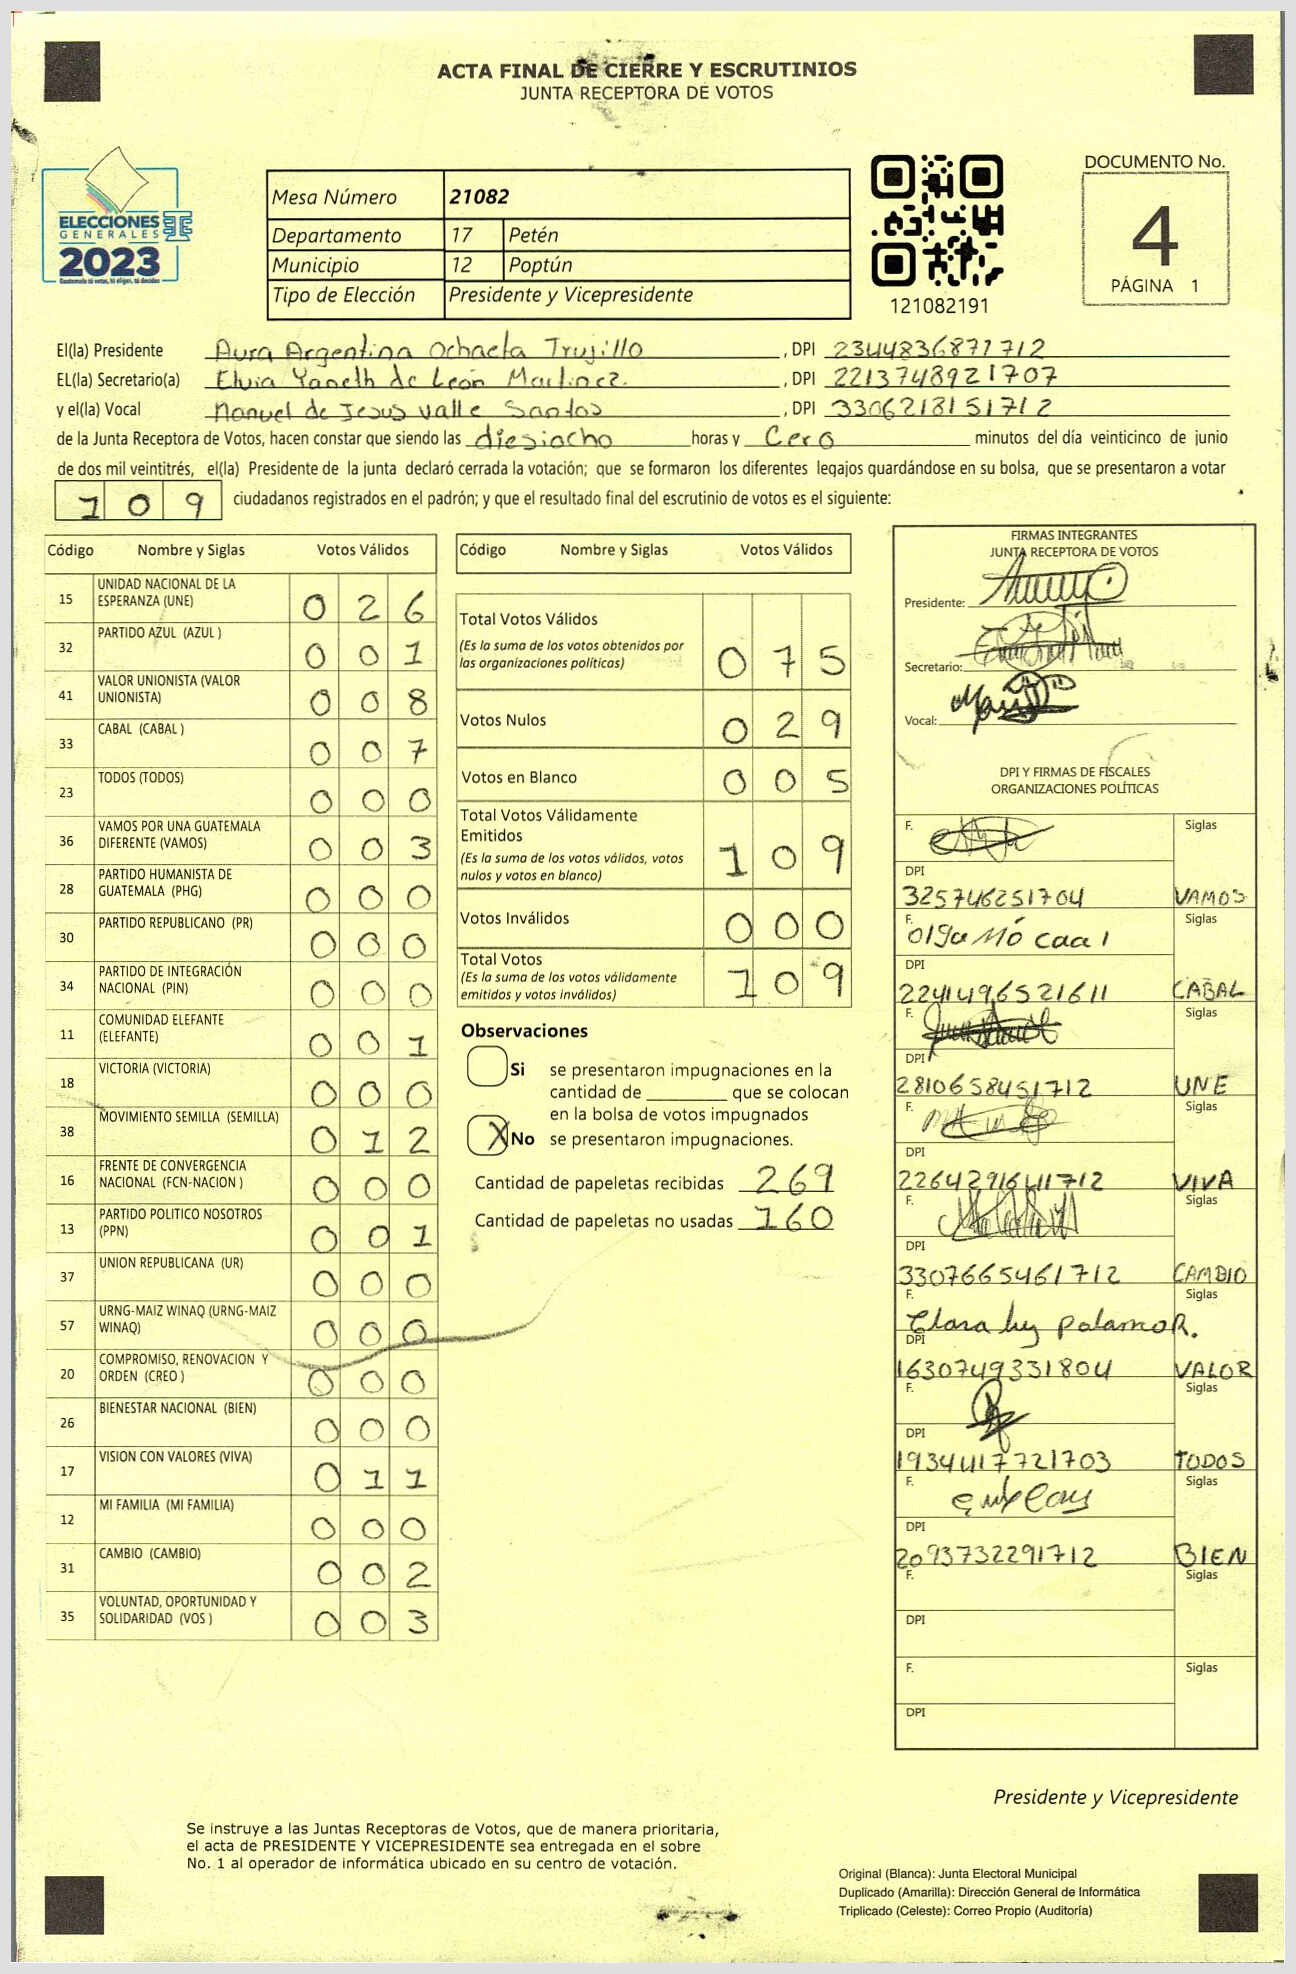 ACTA FINAL DE CIERRE Y ESCRUTINIOS
JUNTA RECEPTORA DE VOTOS
ELECCIONES
GENERALES
2023
Mesa Número 21082
Departamento 17 Petén
Municipio 12 Poptún
Tipo de Elección Presidente y Vicepresidente
121082191
DOCUMENTO No.
4
PÁGINA 1
El(la) Presidente Aura Argentina Ochaeta Trujillo , DPI 2344836871712
EL(la) Secretario(a) Elvia Yaneth de León Martinez. , DPI 2213748921707
y el(la) Vocal Manuel de Jesus Valle Santos , DPI 3306218151712
de la Junta Receptora de Votos, hacen constar que siendo las diesiocho horas y Cero minutos del día veinticinco de junio
de dos mil veintitrés, el(la) Presidente de la junta declaró cerrada la votación; que se formaron los diferentes legajos guardándose en su bolsa, que se presentaron a votar
109 ciudadanos registrados en el padrón; y que el resultado final del escrutinio de votos es el siguiente:
Código Nombre y Siglas Votos Válidos
15 UNIDAD NACIONAL DE LA
ESPERANZA (UNE) 026
32 PARTIDO AZUL (AZUL ) 001
41 VALOR UNIONISTA (VALOR
UNIONISTA) 008
33 CABAL (CABAL ) 007
23 TODOS (TODOS) 000
36 VAMOS POR UNA GUATEMALA
DIFERENTE (VAMOS) 003
28 PARTIDO HUMANISTA DE
GUATEMALA (PHG) 000
30 PARTIDO REPUBLICANO (PR) 000
34 PARTIDO DE INTEGRACIÓN
NACIONAL (PIN) 000
11 COMUNIDAD ELEFANTE
(ELEFANTE) 001
18 VICTORIA (VICTORIA) 000
38 MOVIMIENTO SEMILLA (SEMILLA) 012
16 FRENTE DE CONVERGENCIA
NACIONAL (FCN-NACION ) 000
13 PARTIDO POLITICO NOSOTROS
(PPN) 001
37 UNION REPUBLICANA (UR) 000
57 URNG-MAIZ WINAQ (URNG-MAIZ
WINAQ) 000
20 COMPROMISO, RENOVACION Y
ORDEN (CREO ) 000
26 BIENESTAR NACIONAL (BIEN) 000
17 VISION CON VALORES (VIVA) 011
12 MI FAMILIA (MI FAMILIA) 000
31 CAMBIO (CAMBIO) 002
35 VOLUNTAD, OPORTUNIDAD Y
SOLIDARIDAD (VOS ) 003
Código Nombre y Siglas Votos Válidos
Total Votos Válidos
(Es la suma de los votos obtenidos por
las organizaciones políticas) 075
Votos Nulos 029
Votos en Blanco 005
Total Votos Válidamente
Emitidos
(Es la suma de los votos válidos, votos
nulos y votos en blanco) 109
Votos Inválidos 000
Total Votos
(Es la suma de los votos válidamente
emitidos y votos inválidos) 109
Observaciones
Si se presentaron impugnaciones en la
cantidad de ________ que se colocan
en la bolsa de votos impugnados
X No se presentaron impugnaciones.
Cantidad de papeletas recibidas 269
Cantidad de papeletas no usadas 160
FIRMAS INTEGRANTES
JUNTA RECEPTORA DE VOTOS
Presidente:
Secretario:
Vocal:
DPI Y FIRMAS DE FISCALES
ORGANIZACIONES POLÍTICAS
F. Siglas
DPI
325746251704 VAMOS
F. Olga Mó caal Siglas
DPI
2241496521611 CABAL
F. Siglas
DPI
2810658451712 UNE
F. Siglas
DPI
2264291641712 VIVA
F. Siglas
DPI
3307665461712 CAMBIO
F. Siglas
Clara luz palamo R.
DPI
1630749331804 VALOR
F. Siglas
DPI
1934417721703 TODOS
F. Siglas
DPI
2093732291712 BIEN
F. Siglas
DPI
F. Siglas
DPI
Presidente y Vicepresidente
Se instruye a las Juntas Receptoras de Votos, que de manera prioritaria,
el acta de PRESIDENTE Y VICEPRESIDENTE sea entregada en el sobre
No. 1 al operador de informática ubicado en su centro de votación.
Original (Blanca): Junta Electoral Municipal
Duplicado (Amarilla): Dirección General de Informática
Triplicado (Celeste): Correo Propio (Auditoría)